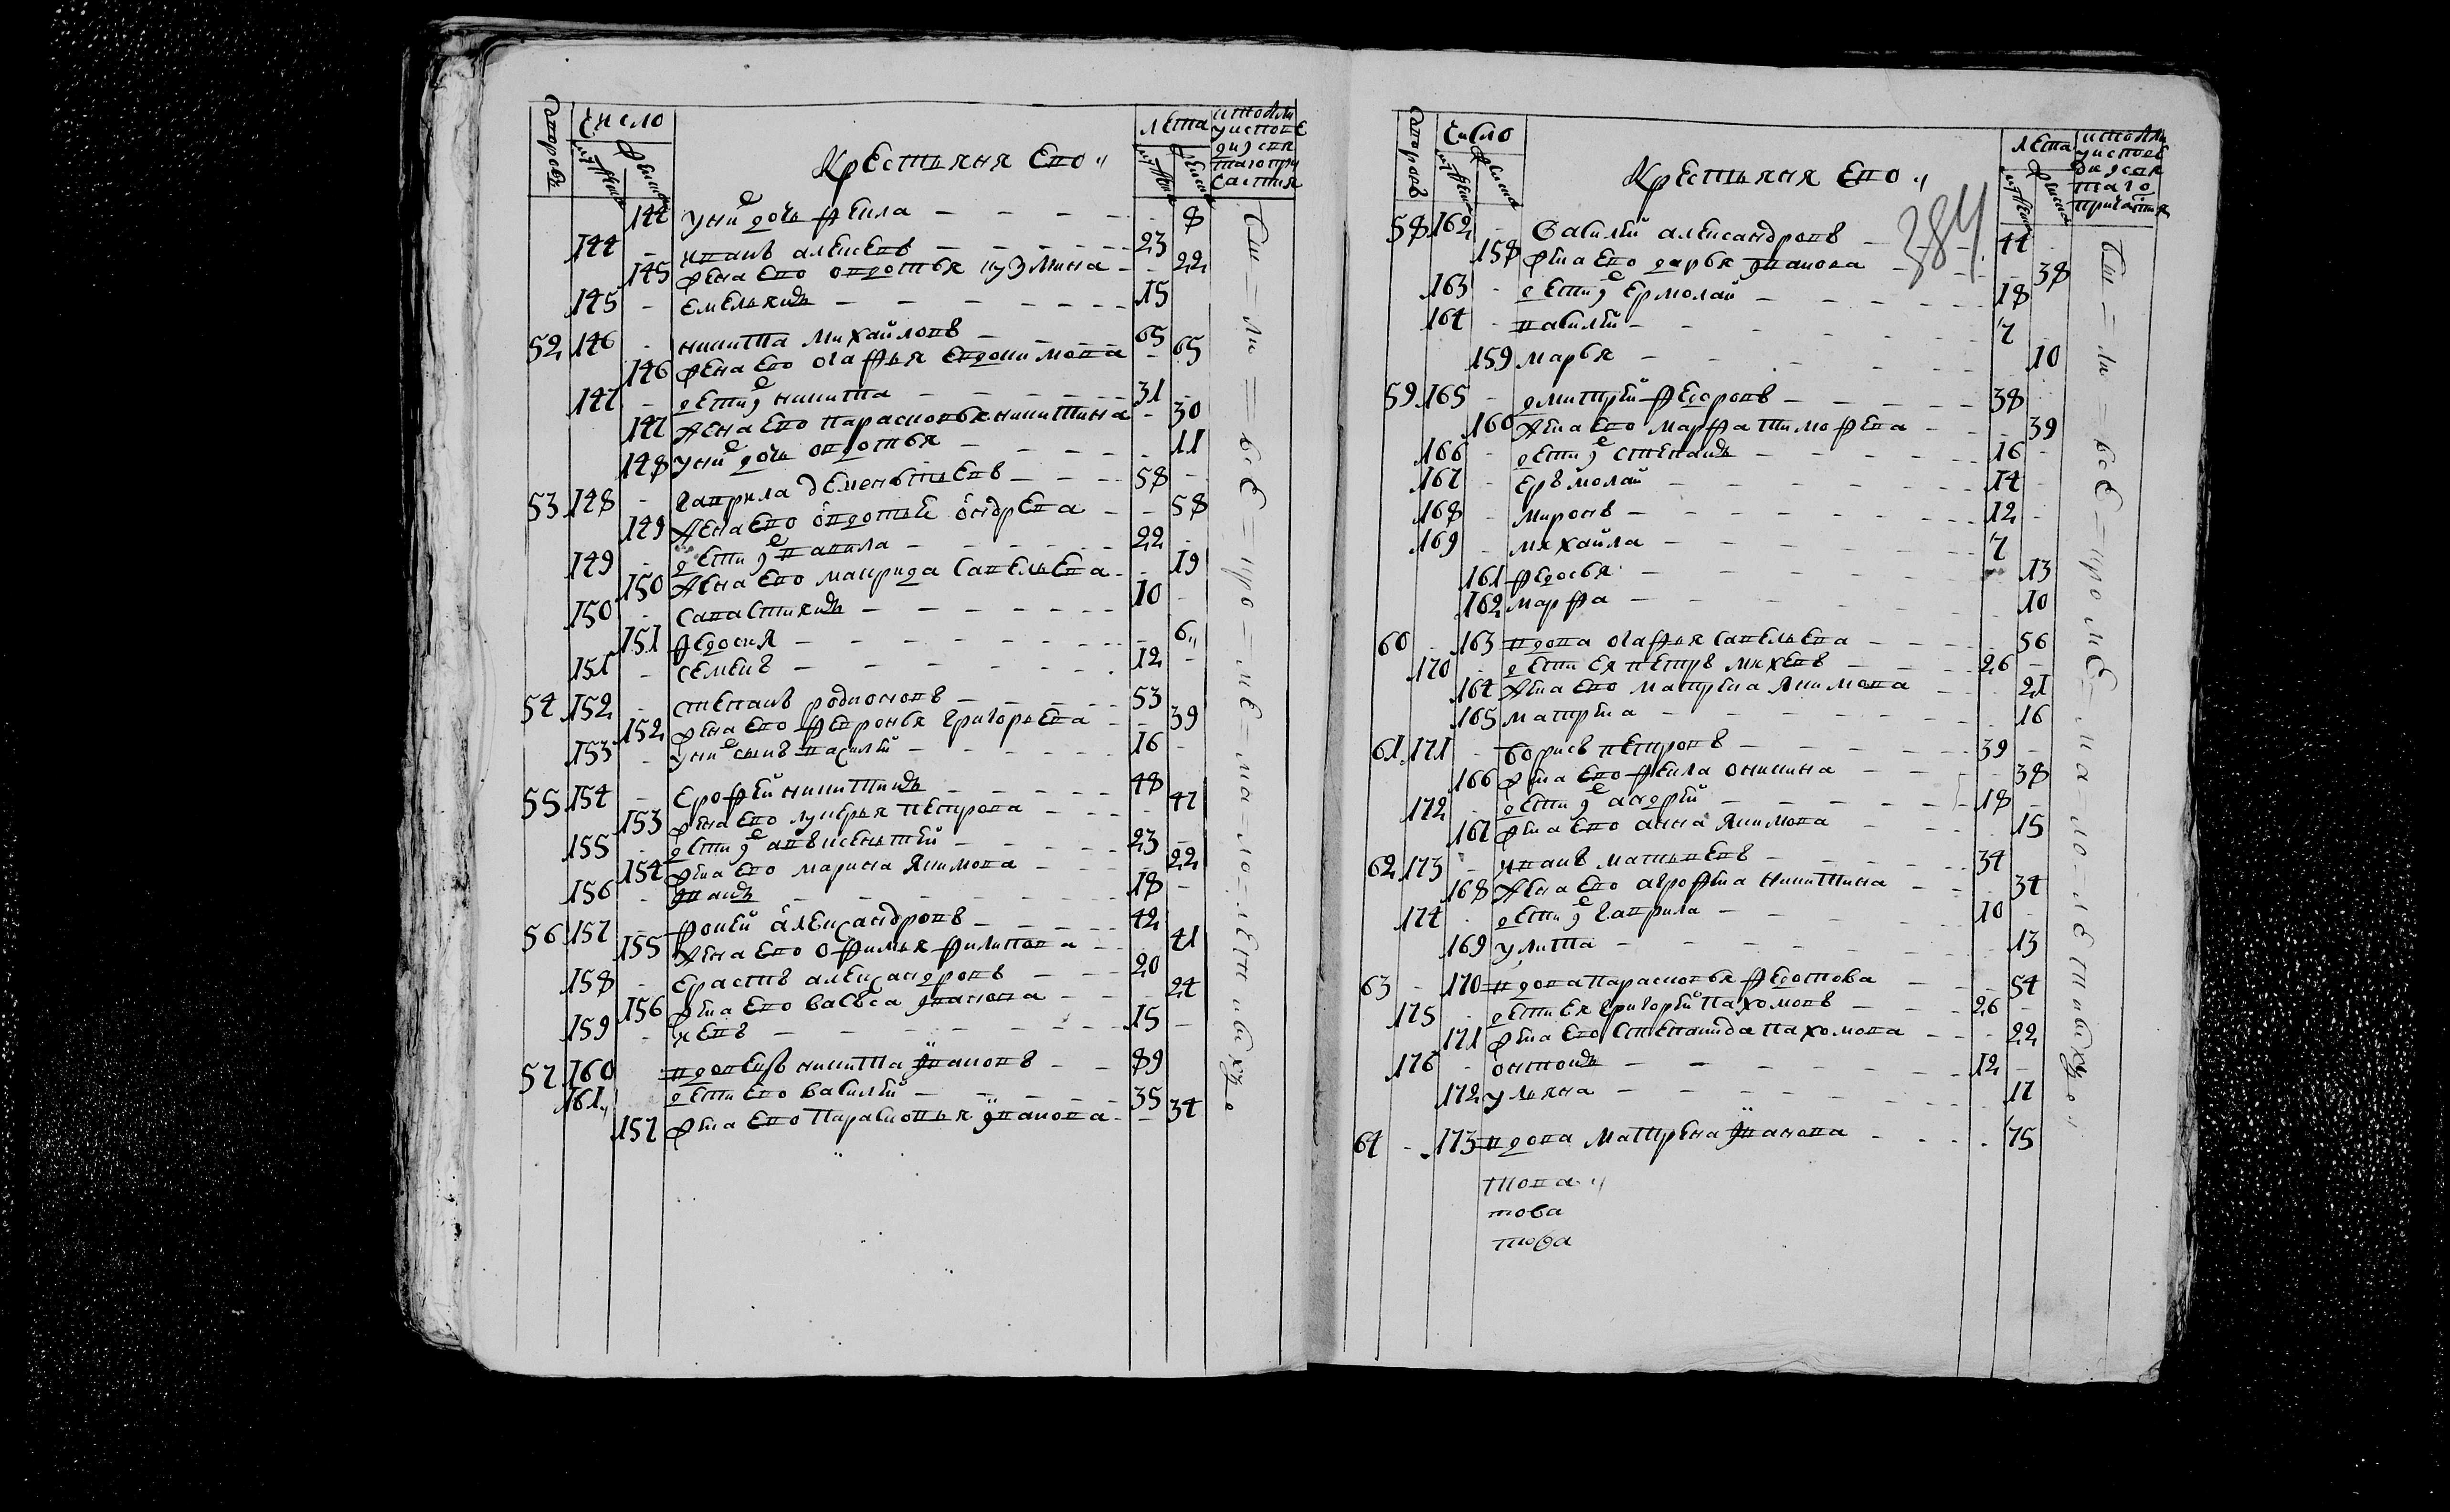 дворовъ число Крестьяня Ево лета
144 у нихъ дочь фекла 8
144 иванъ алексевъ 23
145 жена Ево овдотья кузмина 22
145 Емельянъ 15
52 146 никита михайловъ 65
146 жена Ево огафья Евдокимова 65
147 дети их никита 31
147 жена Ево парасковья никитина 30
148 у них дочь овдотья 11
53 148 гаврила дементьевъ 58
149 жена Ево овдотьа ондрева 58
149 дети их вавила 22
150 жена Ево маврида савельева 19
150 савастиянъ 10
151 федосия 6
151 семенъ 12
54 152 степанъ родионовъ 53
152 жена Ево февронья григорьева 39
153 у них сынъ василей 16
55 154 Ерофей никитинъ 48
153 жена Ево лукерья петрова 47
155 дети их авъксентей 23
154 жена Ево марина якимова 22
156 иванъ 18
56 157 фокей александровъ 42
155 жена Ево офимья филипова 41
158 Ерастъ александровъ 20
156 жена Ево васъса иванова 24
159 яевъ 15
57 160 вдовецъ никита ивановъ 89
161 дети Ево василей 35
157 жена Ево парасковья иванова 34
бы=ли=все=кро=ме=ма=ло=летнихъ
дворовъ число Крестьяня Ево лета
384
58 162 василей александровъ 44
158 жена Ево дарья иванова 38
163 дети их Ермолай 18
164 василей 7
159 марья 10
59 165 дмитрей федоровъ 38
160 жена Ево марфа тимофева 39
166 дети их степанъ 16
167 Еръмолай 14
168 миронъ 12
169 михайла 7
161 федосья 13
162 марфа 10
60 163 вдова огафья савельева 56
170 дети Ея петръ михевъ 26
164 жена Ево матрена якимова 21
165 матрена 16
61 171 борисъ петровъ 39
166 жена Ево фекла оникина 38
172 дети их андрей 18
167 жена Ево анна якимова 15
62 173 иванъ матьвевъ 34
168 жена Ево аграфена никитина 34
174 дети их гаврила 10
169 улита 13
63 170 вдова парасковья федотова 54
175 дети Ея григорей пахомовъ 26
171 жена Ево степанида пахомова 22
176 онтонъ 12
172 ульяна 17
64 173 вдова матрена иванова 75
това
това
това
бы=ли=все=кроме=ма=ло=летнихъ